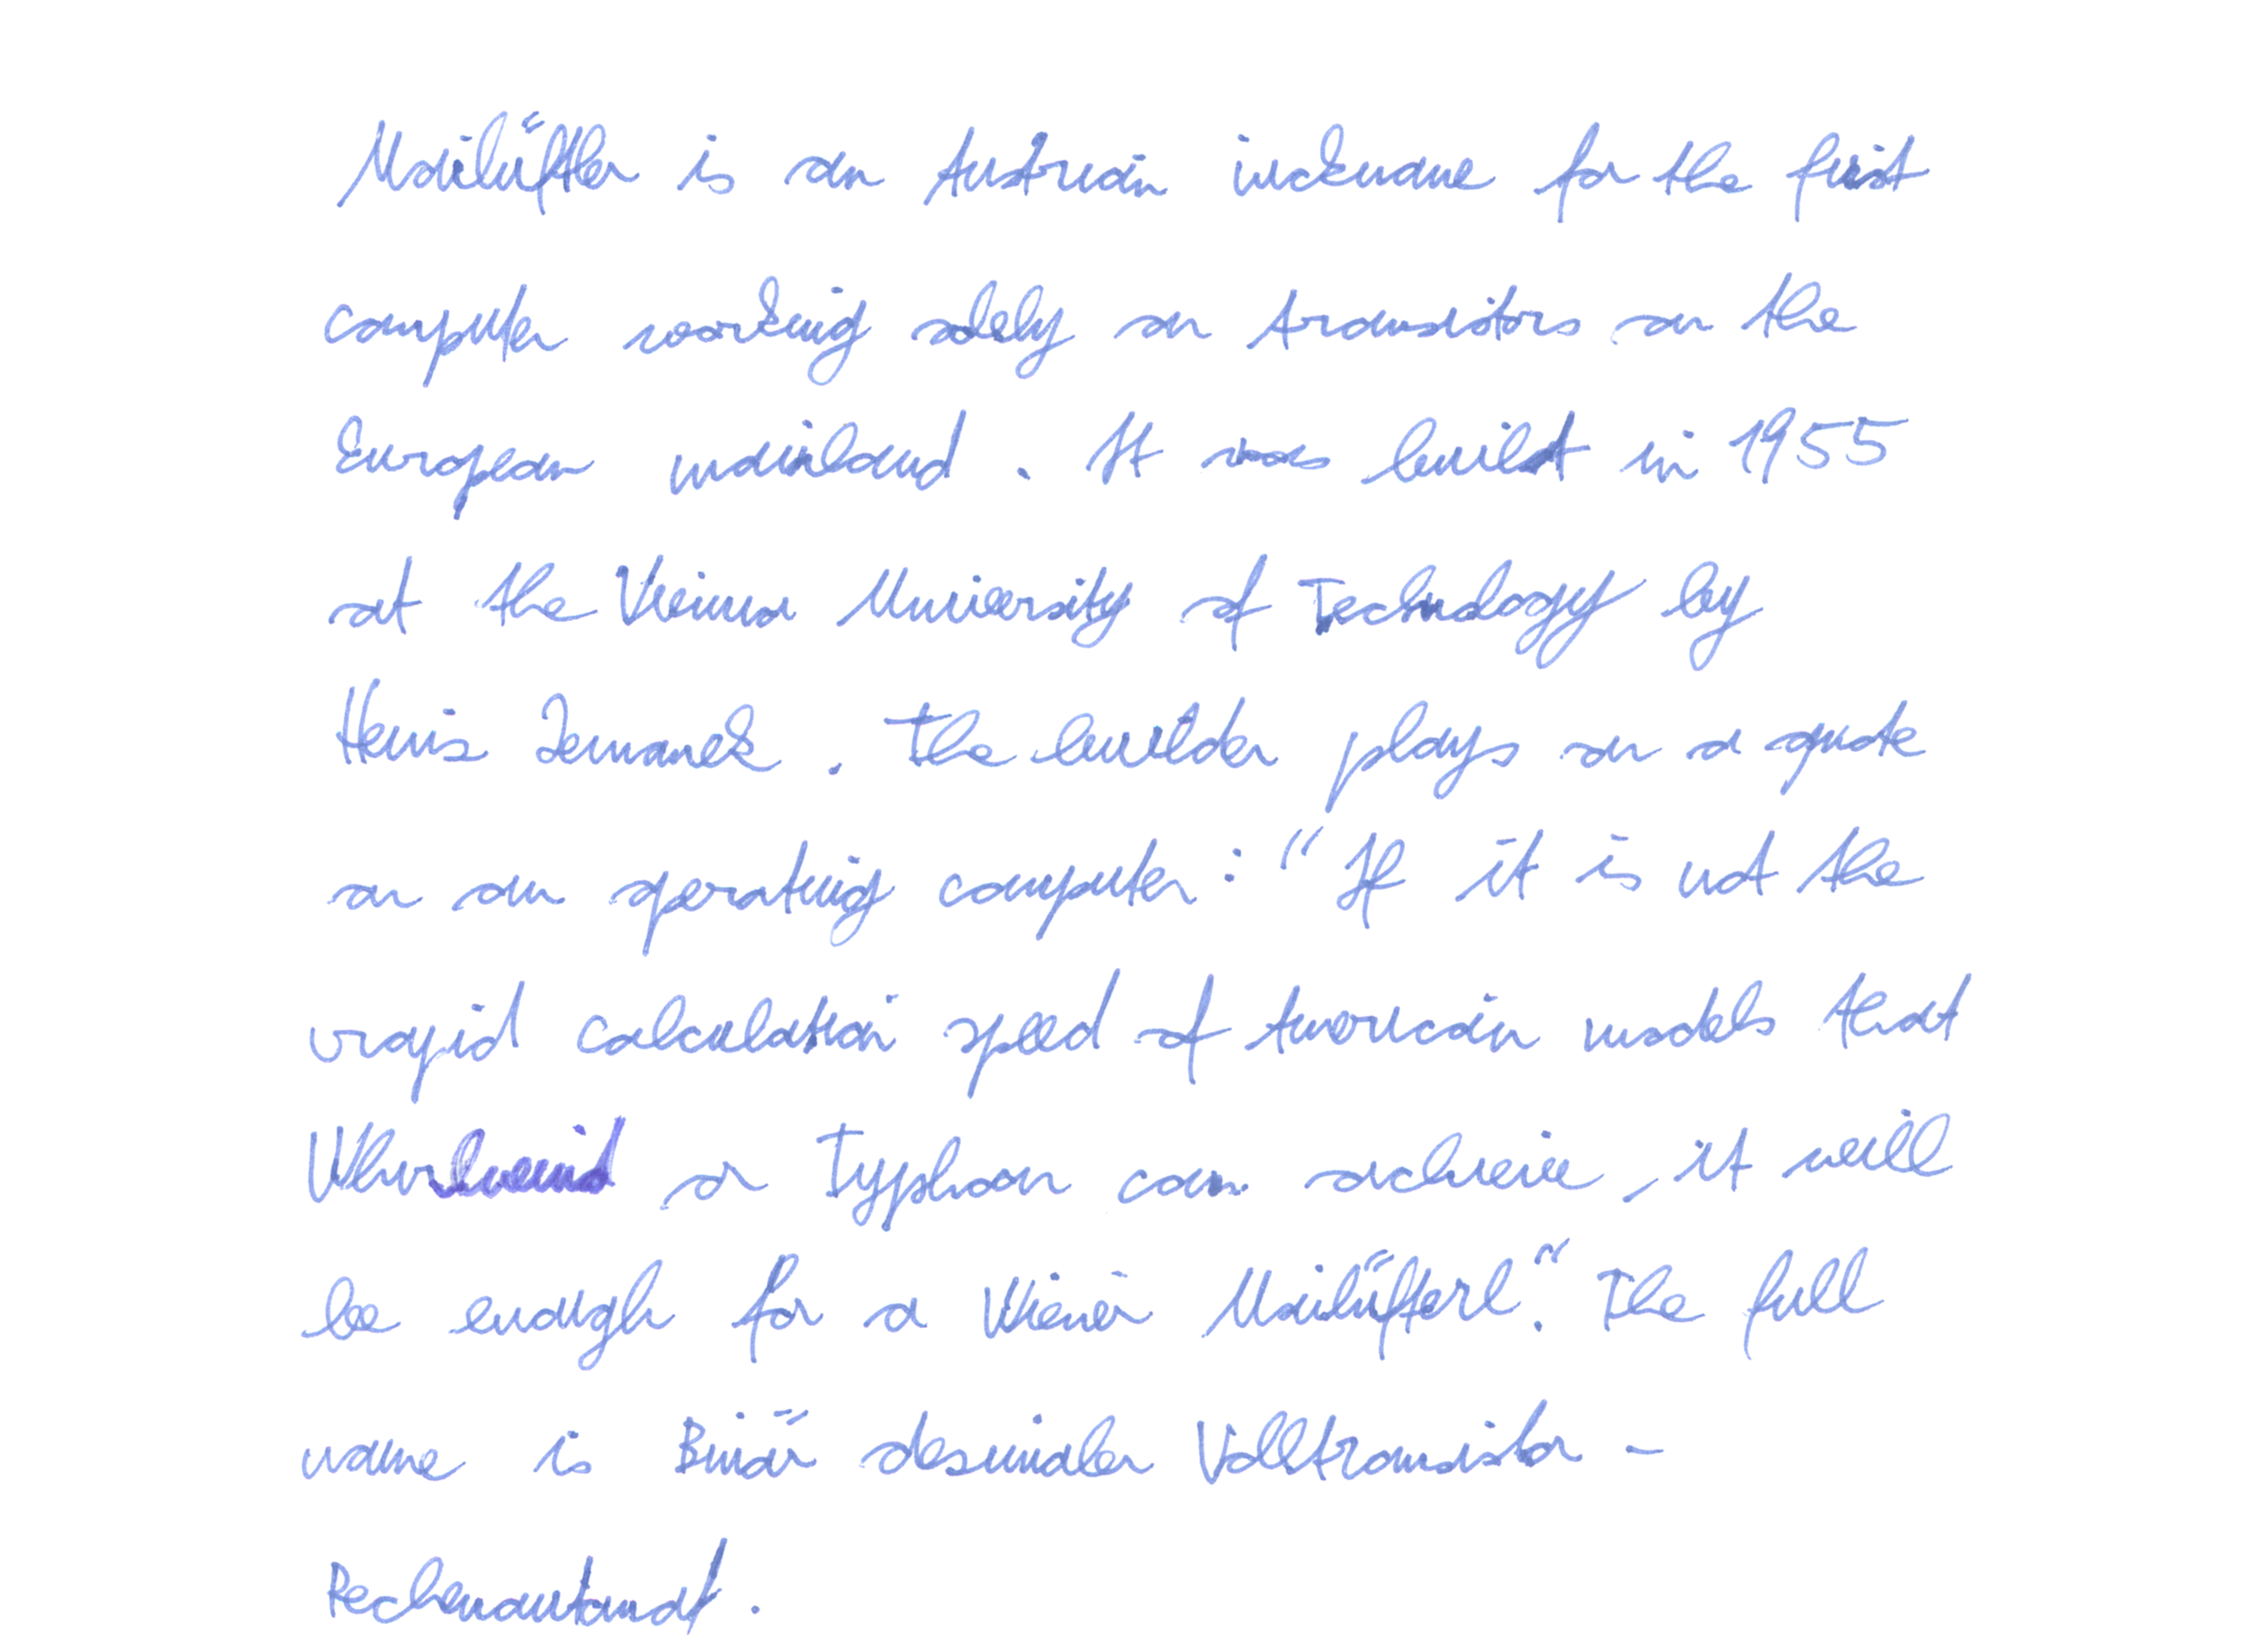 Mailüfter is an Austrian nickname for the first
computer working solely on transistors on the
European mainland. It was built in 1955
at the Vienna University of Technology by
Heinz Zemanek. The builder plays on a quote
on an operating computer: "If it is not the
rapid calculation speed of American models that
Whirlwind or Typhoon can achieve, it will
be enough for a Wiener Mailüfterl". The full
name is Binär dezimaler Volltransistor-
Rechenautomat.